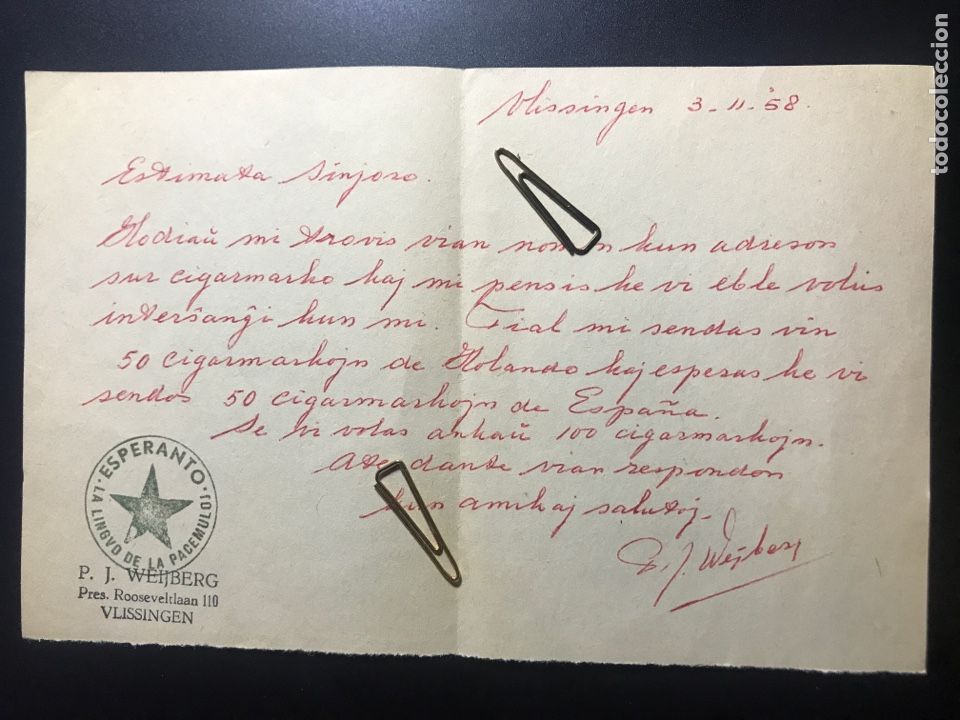 Vlissingen 3-11-'58.
Estimata Sinjoro.
Hodiaŭ mi trovis vian nomon kun adreson
sur cigarmarko kaj mi pensis ke vi eble volus
interŝanĝi kun mi. Tial mi sendas vin
50 cigarmarkojn de Holando kaj esperas ke vi
sendos 50 cigarmarkojn de España.
Se vi volas ankaŭ 100 cigarmarkojn.
Atendante vian respondon
kun amikaj salutoj.
P. J. Weijberg
ESPERANTO
LA LINGVO DE LA PACEMULOJ
P. J. WEIJBERG
Pres. Rooseveltlaan 110
VLISSINGEN
todocoleccion